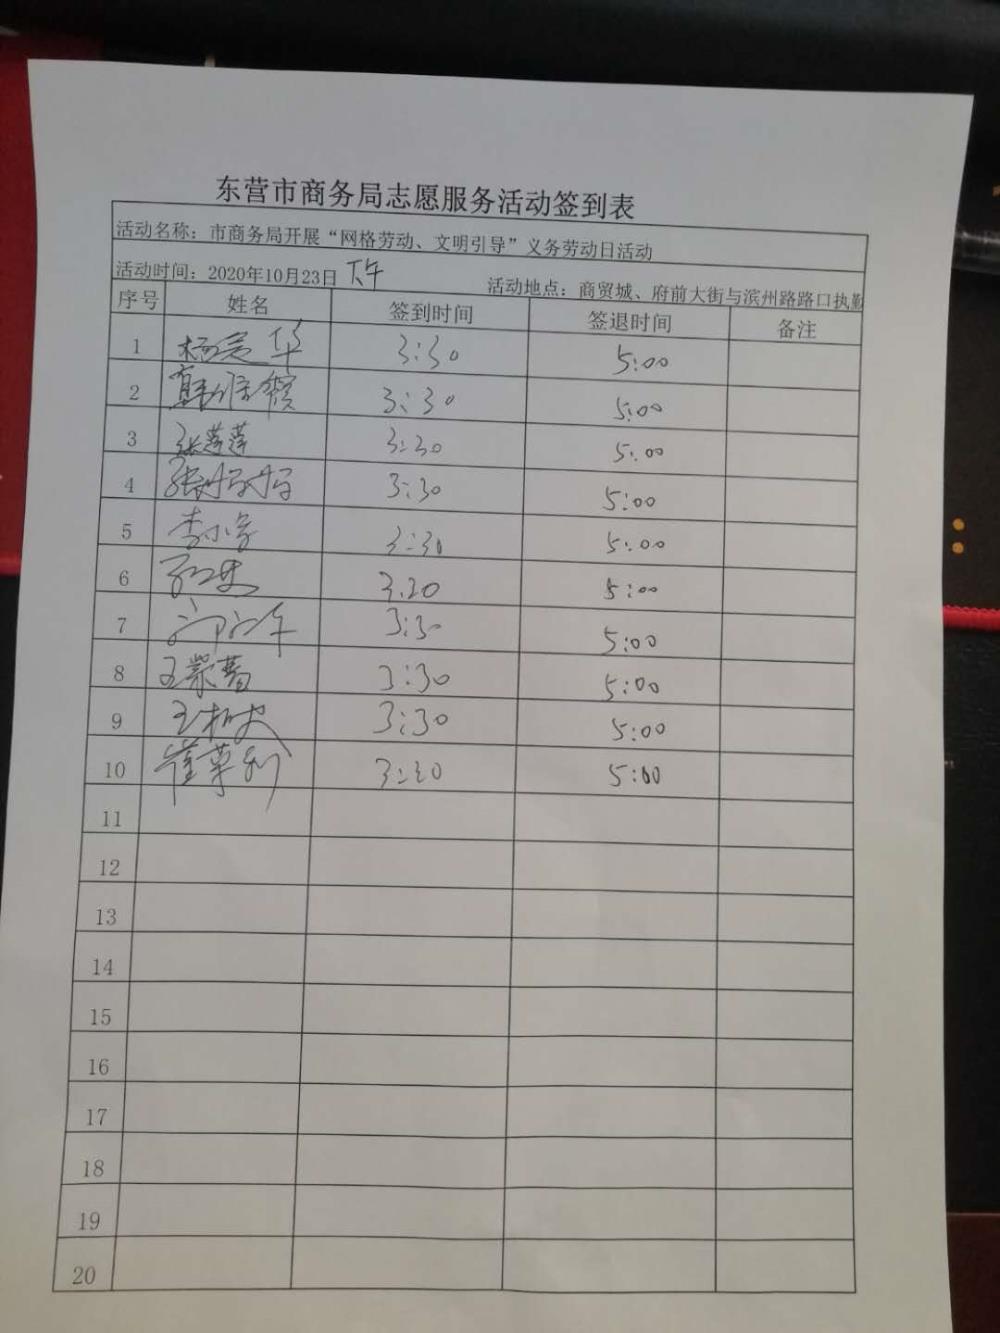 东营市商务局志愿服务活动签到表
活动名称：市商务局开展“网格劳动、文明引导”义务劳动日活动
活动时间：2020年10月23日 下午 活动地点：商贸城、府前大街与滨州路路口执勤
序号 姓名 签到时间 签退时间 备注
1 3:30 5:00
2 3:30 5:00
3 张莲莲 3:30 5:00
4 张婷婷 3:30 5:00
5 李小 3:30 5:00
6 3.20 5:00
7 3:30 5:00
8 王 3:30 5:00
9 王 3:30 5:00
10 崔 3:30 5:00
11
12
13
14
15
16
17
18
19
20